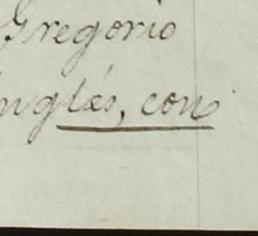 Gregorio
Inglés, con